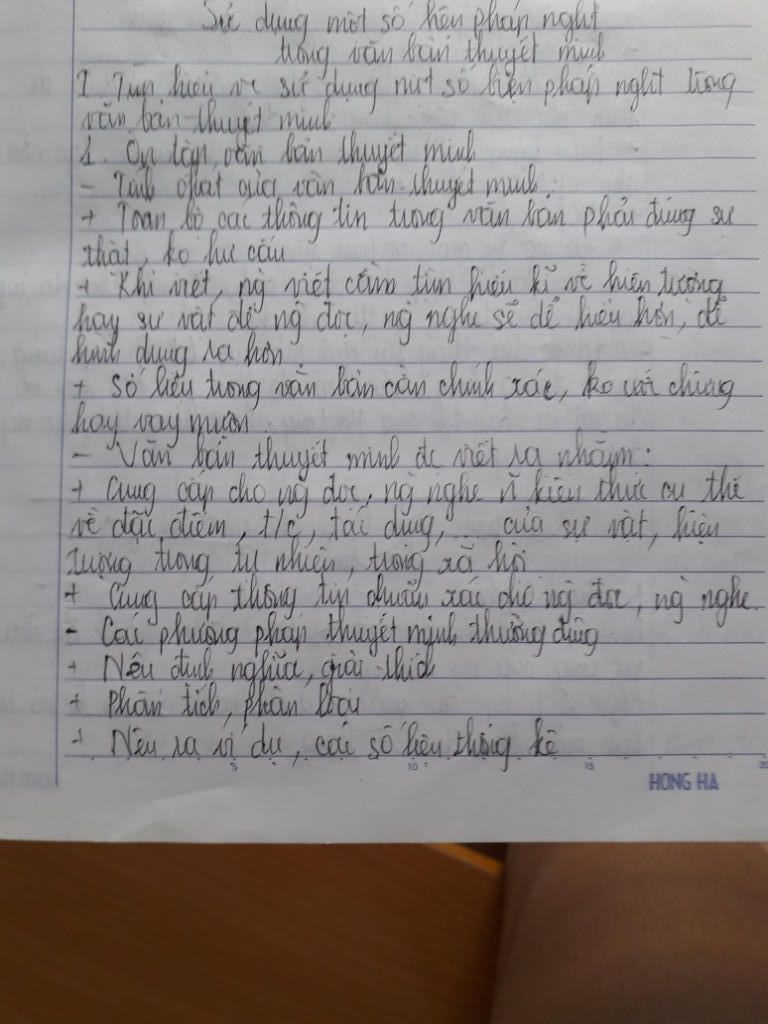 Sử dụng một số biện pháp nghệt
trong văn bản thuyết minh
I. Tìm hiểu về sử dụng một số biện pháp nghệt trong
văn bản thuyết minh
1. Ôn tập văn bản thuyết minh
- Tính chất của văn bản thuyết minh:
+ Toàn bộ các thông tin trong văn bản phải đúng sự
thật, ko hư cấu
+ Khi viết, ng viết cần tìm hiểu kĩ về hiện tượng
hay sự vật để ng đọc, ng nghe sẽ dễ hiểu hơn, dễ
hình dung ra hơn
+ Số liệu trong văn bản cần chính xác, ko ước chừng
hay vay mượn.
- Văn bản thuyết minh đc viết ra nhằm:
+ Cung cấp cho ng đọc, ng nghe ~n kiến thức cụ thể
về đặc điểm, t/c, tác dụng, ... của sự vật, hiện
tượng trong tự nhiên, trong xã hội
+ Cung cấp thông tin chuẩn xác cho ng đọc, ng nghe.
- Các phương pháp thuyết minh thường dùng
+ Nêu định nghĩa, giải thích
+ Phân tích, phân loại
+ Nêu ra ví dụ, các số liệu thống kê
5 10 15 20
HONG HA